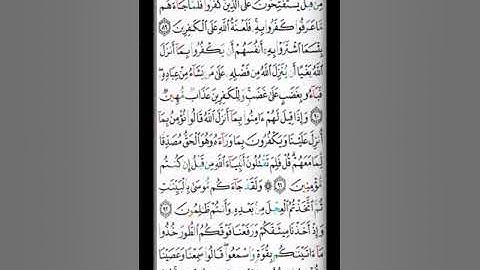 مِن قَبْلُ يَسْتَفْتِحُونَ عَلَى ٱلَّذِينَ كَفَرُوا۟ فَلَمَّا جَآءَهُم
مَّا عَرَفُوا۟ كَفَرُوا۟ بِهِۦ ۚ فَلَعْنَةُ ٱللَّهِ عَلَى ٱلْكَٰفِرِينَ ٨٩
بِئْسَمَا ٱشْتَرَوْا۟ بِهِۦٓ أَنفُسَهُمْ أَن يَكْفُرُوا۟ بِمَآ أَنزَلَ
ٱللَّهُ بَغْيًا أَن يُنَزِّلَ ٱللَّهُ مِن فَضْلِهِۦ عَلَىٰ مَن يَشَآءُ مِنْ عِبَادِهِۦ ۖ
فَبَآءُو بِغَضَبٍ عَلَىٰ غَضَبٍ ۚ وَلِلْكَٰفِرِينَ عَذَابٌ مُّهِينٌ
٩٠ وَإِذَا قِيلَ لَهُمْ ءَامِنُوا۟ بِمَآ أَنزَلَ ٱللَّهُ قَالُوا۟ نُؤْمِنُ بِمَآ
أُنزِلَ عَلَيْنَا وَيَكْفُرُونَ بِمَا وَرَآءَهُۥ وَهُوَ ٱلْحَقُّ مُصَدِّقًا
لِّمَا مَعَهُمْ ۗ قُلْ فَلِمَ تَقْتُلُونَ أَنۢبِيَآءَ ٱللَّهِ مِن قَبْلُ إِن كُنتُم
مُّؤْمِنِينَ ٩١ ۞ وَلَقَدْ جَآءَكُم مُّوسَىٰ بِٱلْبَيِّنَٰتِ
ثُمَّ ٱتَّخَذْتُمُ ٱلْعِجْلَ مِنۢ بَعْدِهِۦ وَأَنتُمْ ظَٰلِمُونَ ٩٢
وَإِذْ أَخَذْنَا مِيثَٰقَكُمْ وَرَفَعْنَا فَوْقَكُمُ ٱلطُّورَ خُذُوا۟
مَآ ءَاتَيْنَٰكُم بِقُوَّةٍ وَٱسْمَعُوا۟ ۖ قَالُوا۟ سَمِعْنَا وَعَصَيْنَا